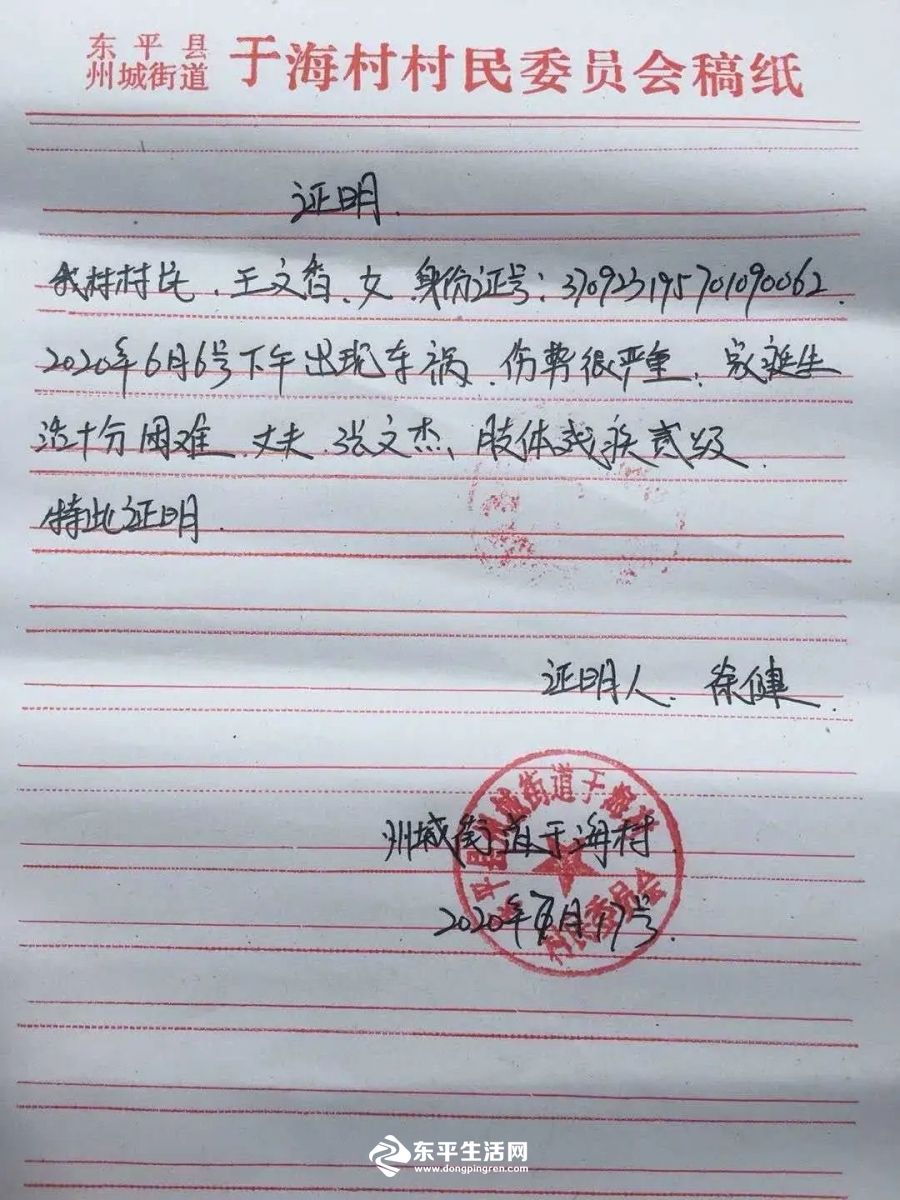 东平县
州城街道
于海村村民委员会稿纸
证明.
我村村民、王文香、女 身份证号:370923195701090062.
2020年6月6号下午出现车祸、伤势很严重;家庭生
活十分困难、丈夫、张文杰、肢体残疾贰级
特此证明.
证明人、徐健.
东平县州城街道于海村
村民委员会
州城街道于海村
2020年 月17号.
东平生活网
www.dongpingren.com